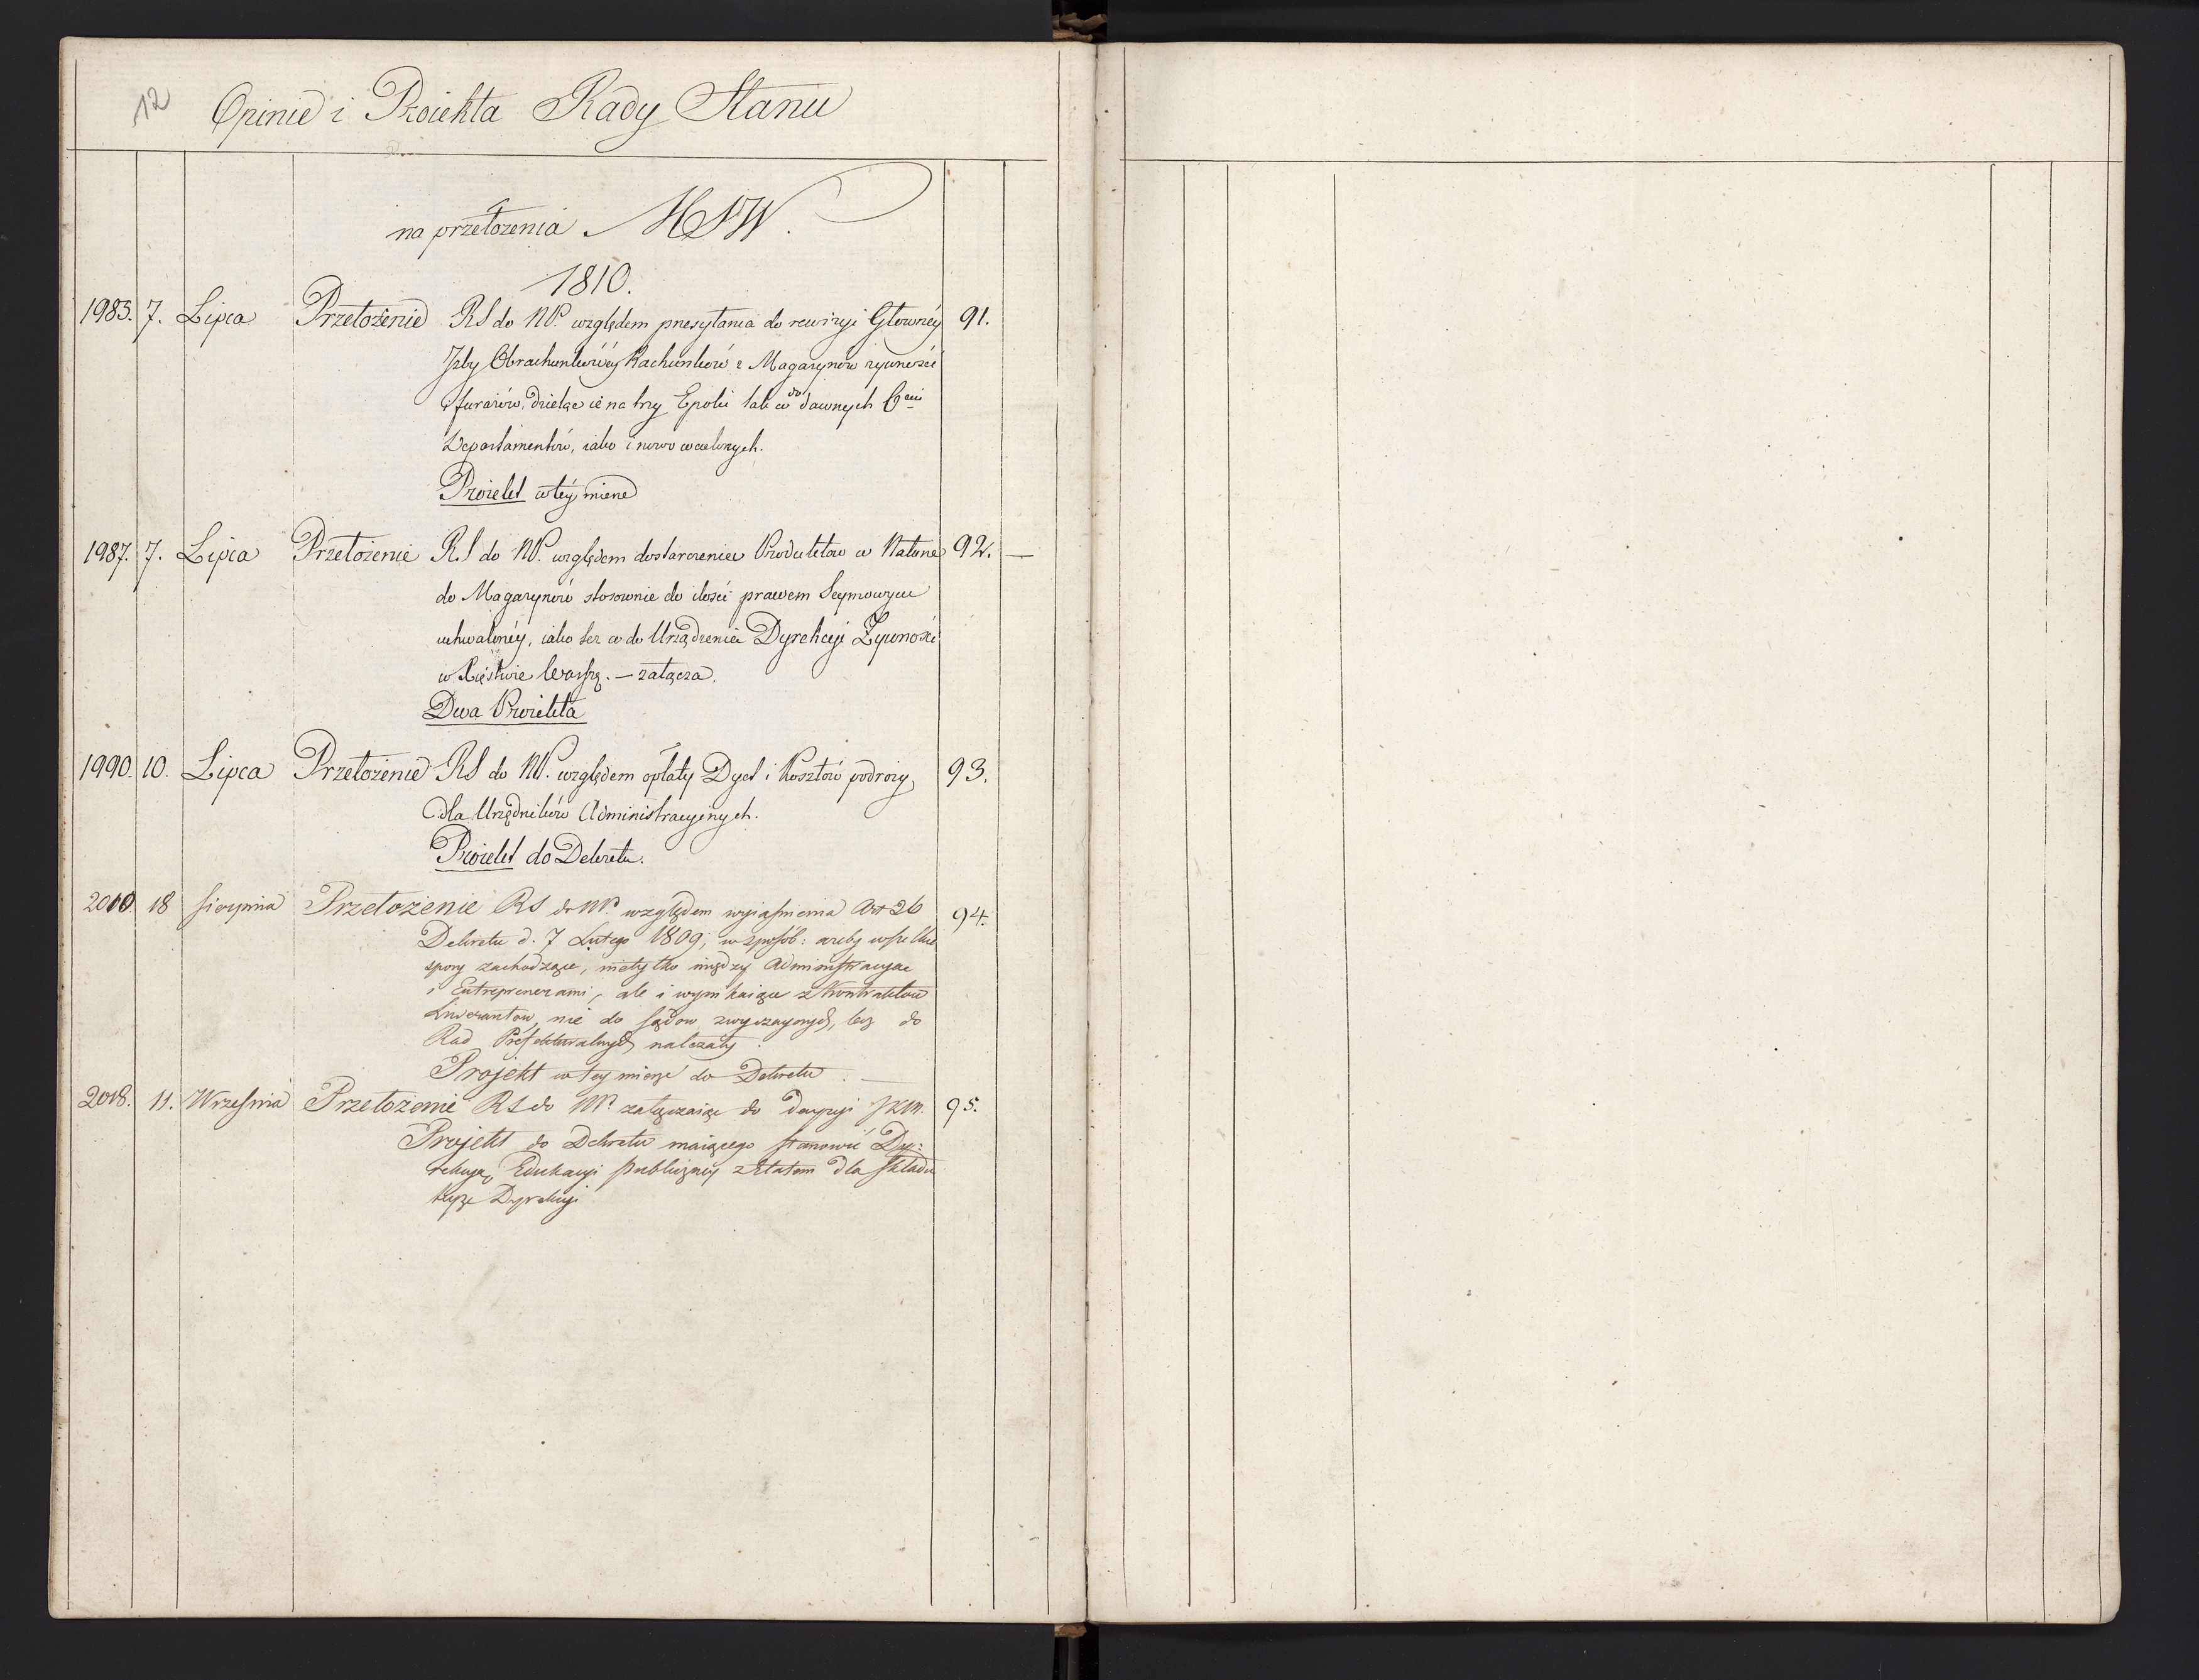 12 Opinie i Proiekta Rady Stanu
na przełożenia MSW.
1810.
1983. 7. Lipca Przełożenie RS do NP. względem przesyłania do rewizyi Główney 91.
Izby Obrachunkowéy Rachunków z Magazynów żywności
i furażów, dzieląc ie na trzy Epoki tak co do dawnych 6ciu
Departamentów, iako i nowo wcielonych.
Proiekt w téy mierze
1987. 7. Lipca Przełożenie R.S do NP. względem dostarczenia Produktów w Naturze 92. —
do Magazynów stosownie do ilości prawem Seymowym
uchwalonéy, iako tez co do Urządzenia Dyrekcyi Żywności
w Xięstwie Warszą. — załącza.
Dwa Proiekta
1990. 10. Lipca Przełożenie RS do NP. względem opłaty Dyet i Kosztów podroży 93.
dla Urzędników Administracyinych.
Proiekt do Dekretu.
2010 18 Sierpnia Przełożenie RS do NP. względem wyiaśnienia Art 26 94.
Dekretu d. 7 Lutego 1809; w sposób: ażeby wszelkie
spory zachodzące, nietylko między Administracyą
i Entreprenerami, ale i wynikaiące z Kontraktów
Liwerantów, nie do sądów zwyczaynych, lecz do
Rad Préfekturalnych należały
Projekt w tey mierze do Dekretu. —
2018. 11. Września Przełożenie RS do NP. załączaiące do decyzyi JKM. 95.
Projekt do Dekretu maiącego stanowić Dy-
rekcyą Edukacyi publiczney z Etatem dla składu
teyże Dyrekcyi